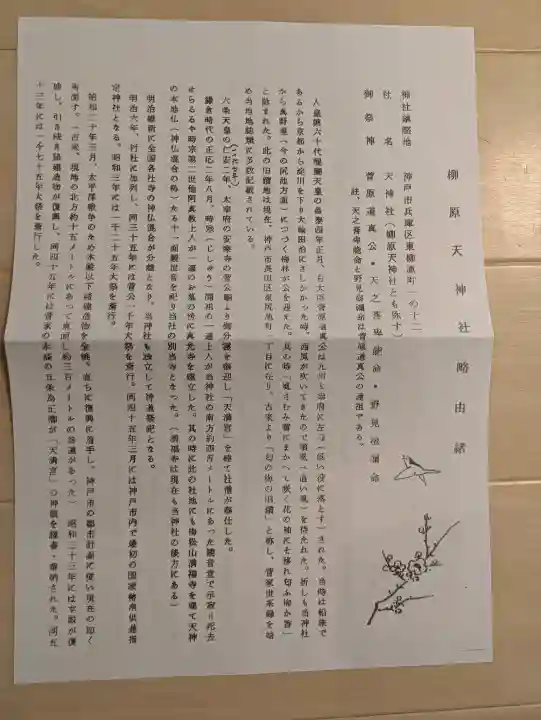 柳原天神社略由緒
神社鎮座地　神戸市兵庫区東柳原町一の十二
社名　天神社（柳原天神社とも称す）
御祭神　菅原道真公・天之菩卑能命・野見宿禰命
註、天之菩卑能命と野見宿禰命は菅原道真公の遠祖である。
人皇第六十代醍醐天皇の昌泰四年正月、右大臣菅原道真公は九州太宰府に左遷（低い役に落とす）された。当時は船旅で
あるから京都から淀川を下り大輪田泊にさしかかった時、西風が吹いてきたので順風（追い風）を待たれた。折しも当神社
から真野里（今の尻池方面）につづく梅林が公を迎えた。其の時「風さむみ雪にまがへて咲く花の袖にぞ移れ匂ふ梅が香」
と詠まれた。此の旧蹟地は現在、神戸市長田区東尻池町一丁目に在り、古来より「匂の梅の旧蹟」と称し、菅家世系録を始
め当地地誌類に多数記載されている。
六条天皇の仁安二年、太宰府の安楽寺の菅公廟より御分霊を勧迎し「天満宮」を建て社僧が奉仕した。
鎌倉時代の正応二年八月、時宗（じしゅう）開祖の一遍上人が当神社の南方約四百メートルにあった観音堂で示寂＝死去
せらるるや時宗第二世他阿真教上人が一遍のお墓の傍に真光寺を建立した。其の時に此の社地にも梅松山満福寺を建て天神
の本地仏（神仏混合の称）たる十一面観世音を祀り当社の別当寺となった。（満福寺は現在も当神社の後方にある）
明治維新に全国各社寺の神仏混合が分離となり、当神社も独立して神道祭祀となる。
明治六年、村社に加列し、同三十五年には菅公一千年大祭を斎行。同四十五年三月には神戸市内で最初の国家幣帛供進指
定神社となる。昭和三年には一千二十五年大祭を斎行。
昭和二十年三月、太平洋戦争のため本殿以下諸建造物を全焼、直ちに復興に着手し、神戸市の都市計画に従い現在の如く
南面す。（古来、現地の北方約十五メートルにあって東面し約三百メートルの参道があった）昭和二十三年には本殿が復
興し、引き続き諸建造物が復興し、同四十五年には菅家の本流の五条為正郷が「天満宮」の神額を謹書・奉納された。同五
十三年には一千七十五年大祭を斎行した。